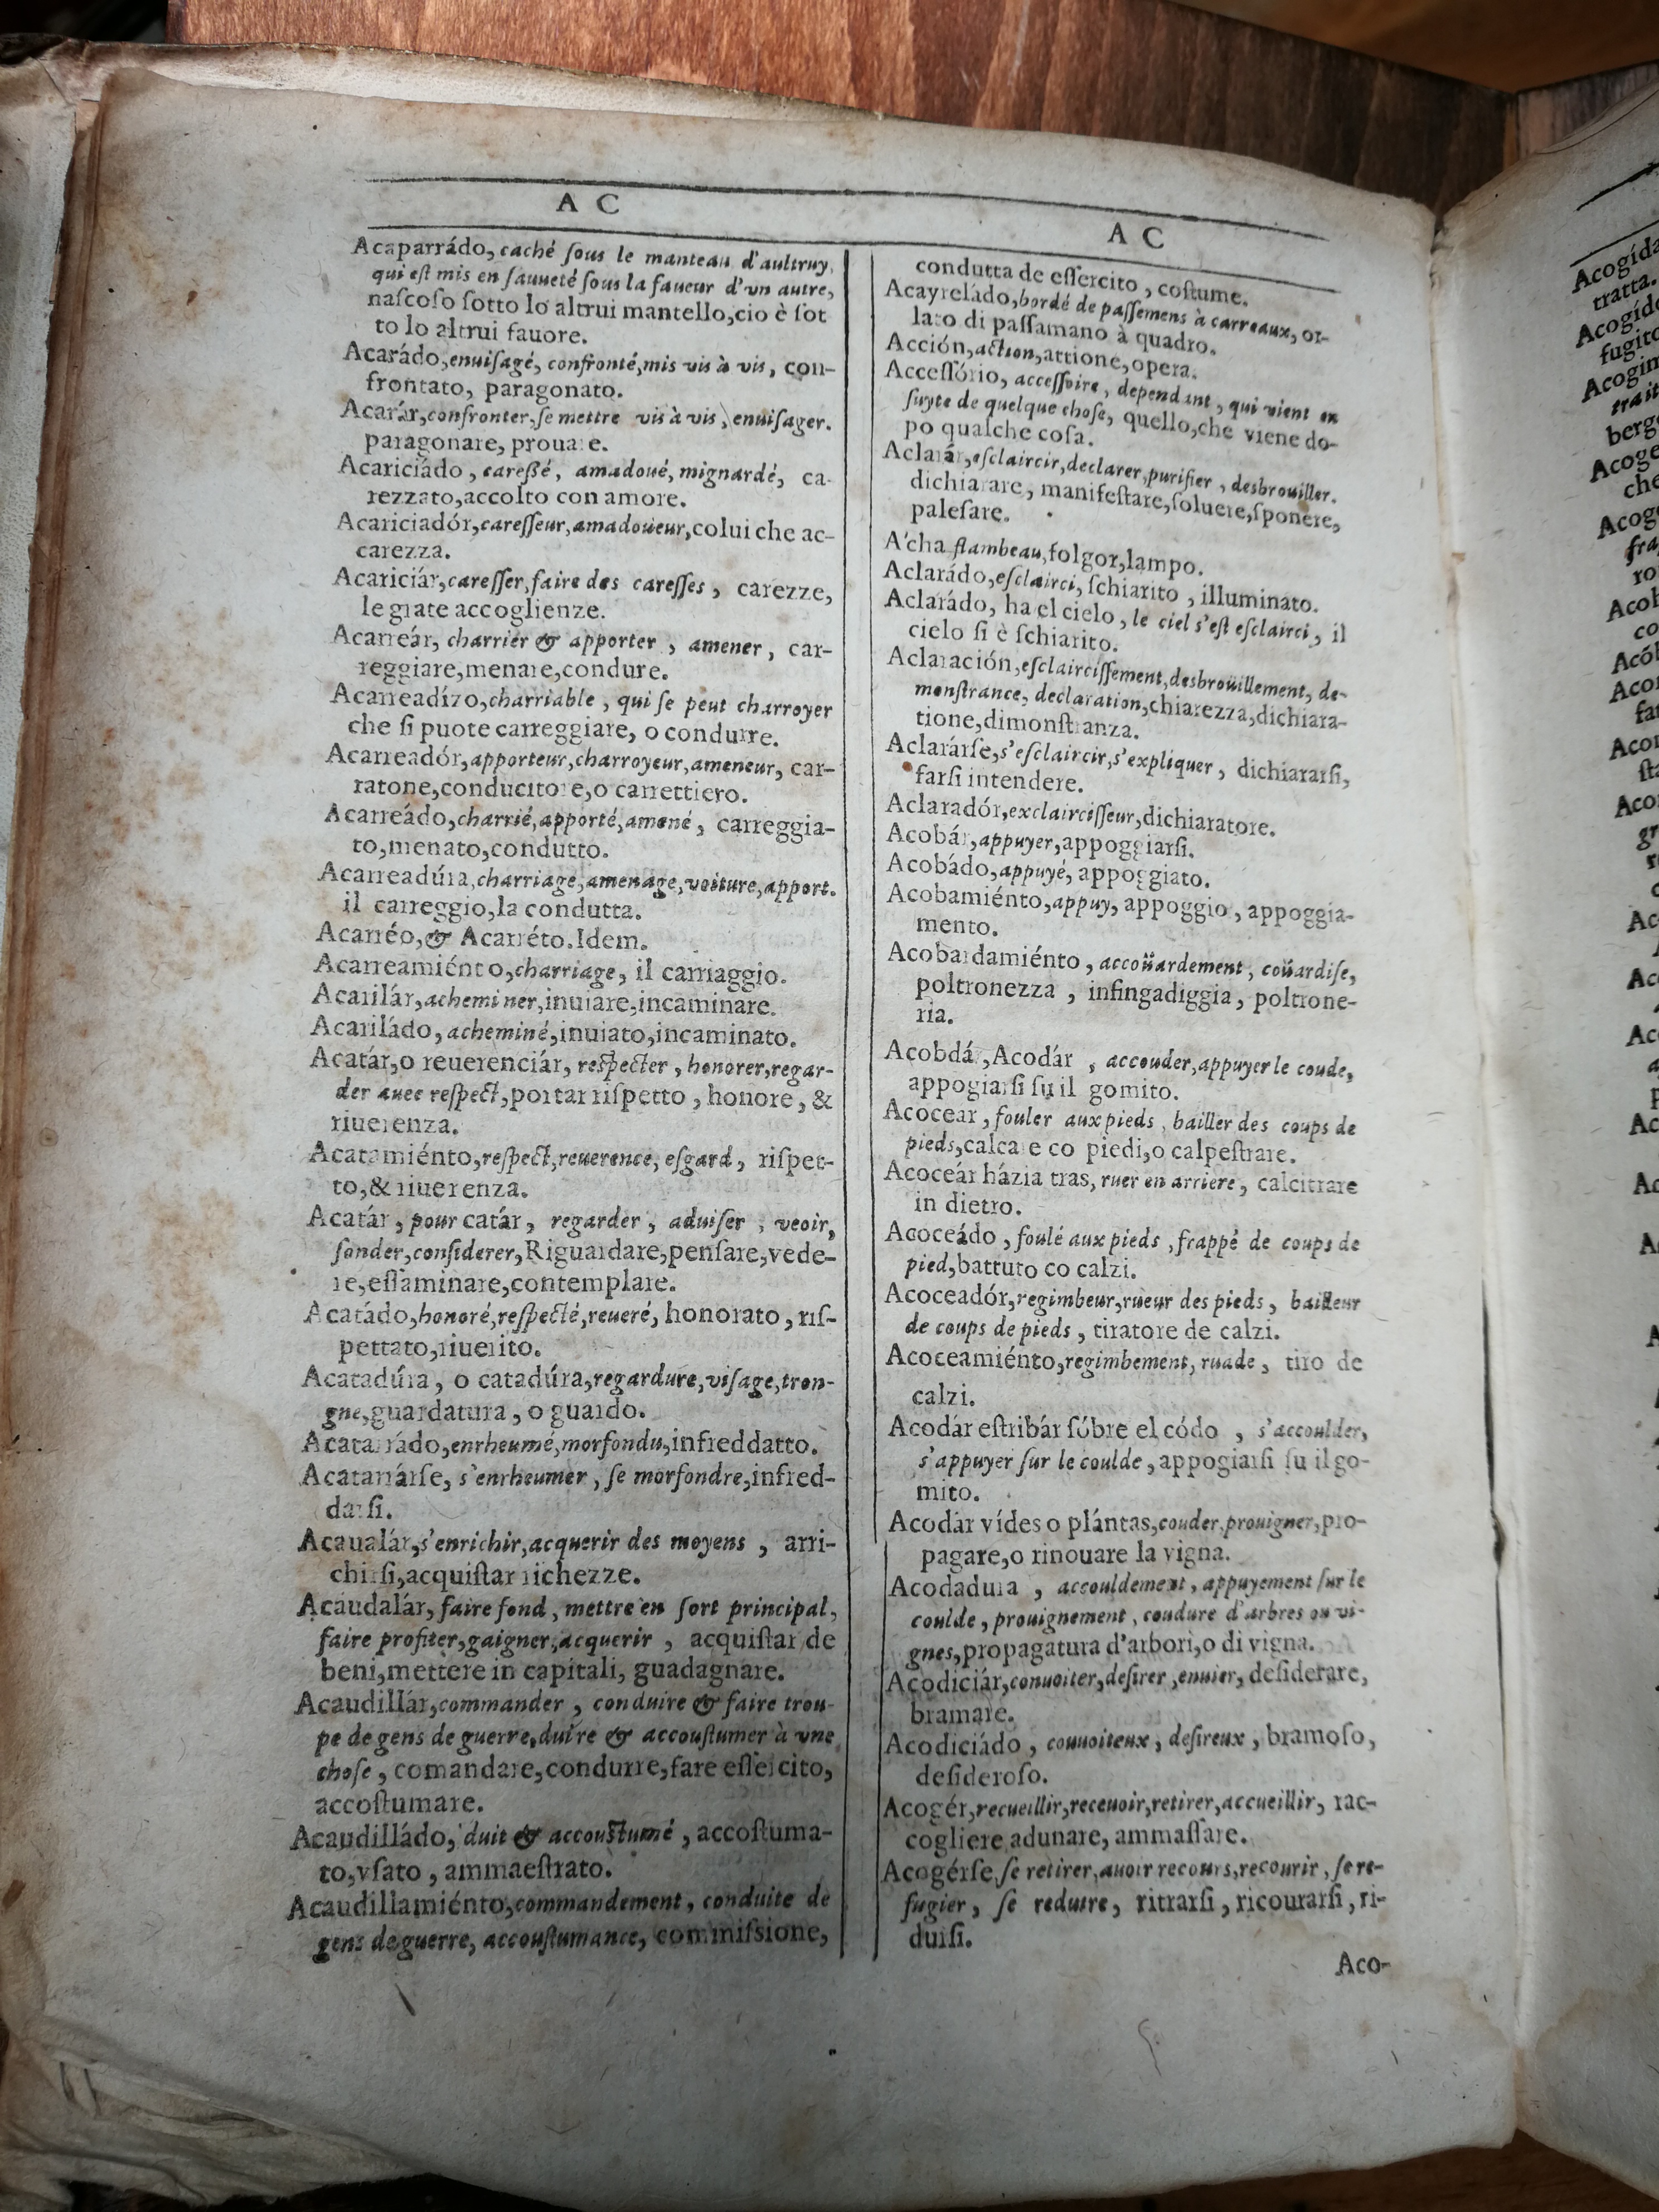 A C
Acaparrádo, caché ſous le manteau d'aultruy,
qui eſt mis en ſauueté ſous la faueur d'vn autre,
naſcoſo ſotto lo altrui mantello,cio è ſot
to lo altrui fauore.
Acarádo,enuiſagé, confronté,mis vis à vis, con-
frontato, paragonato.
Acarár,confronter,ſe mettre vis à vis, enuiſager.
paragonare, prouare.
Acariciádo, careßé, amadoué, mignardé, ca-
rezzato,accolto con amore.
Acariciadór,careſſeur,amadoüeur,colui che ac-
carezza.
Acariciár,careſſer,faire des careſſes, carezze,
le grate accoglienze.
Acarreár, charrier & apporter, amener, car-
reggiare,menare,condure.
Acarreadízo,charriable, qui ſe peut charroyer
che ſi puote carreggiare, o condurre.
Acarreadór,apporteur,charroyeur,ameneur, car-
ratone,conducitore,o carrettiero.
Acarreádo,charrié,apporté,amené, carreggia-
to,menato,condutto.
Acarreadúra,charriage,amenage,voiture,apport.
il carreggio,la condutta.
Acarréo,& Acarréto.Idem.
Acarreamiénto,charriage, il carriaggio.
Acarilár,acheminer,inuiare,incaminare.
Acariládo, acheminé,inuiato,incaminato.
Acatár,o reuerenciár, reſpecter, honorer,regar-
der auec reſpect,portar riſpetto, honore, &
riuerenza.
Acatamiénto,reſpect,reuerence, eſgard, riſpet-
to,& riuerenza.
Acatár, pour catár, regarder, aduiſer, veoir,
ſonder,conſiderer,Riguardare,penſare,vede-
re,eſſaminare,contemplare.
Acatádo,honoré,reſpecté,reueré, honorato, riſ-
pettato,riuerito.
Acatadúra, o catadúra,regardure,viſage,tron-
gne,guardatura, o guardo.
Acatarrádo,enrheumé,morfondu,infreddatto.
Acatarrárſe, s'enrheumer, ſe morfondre,infred-
darſi.
Acaualár,s'enrichir,acquerir des moyens, arri-
chirſi,acquiſtar richezze.
Acaudalár, faire fond, mettre en ſort principal,
faire profiter,gaigner,acquerir, acquiſtar de
beni,mettere in capitali, guadagnare.
Acaudillár,commander, conduire & faire trou-
pe de gens de guerre,duire & accouſtumer à vne
choſe, comandare,condurre,fare eſſercito,
accoſtumare.
Acaudilládo, duit & accouſtumé, accoſtuma-
to,vſato, ammaeſtrato.
Acaudillamiénto,commandement, conduite de
gens de guerre, accouſtumance, commiſsione,
A C
condutta de eſſercito, coſtume.
Acayreládo,bordé de paſſemens à carreaux, or-
lato di paſſamano à quadro.
Acción,action,attione,opera.
Acceſſório, acceſſoire, dependant, qui vient en
ſuyte de quelque choſe, quello,che viene do-
po qualche coſa.
Aclarár,eſclaircir,declarer,purifier, desbrouiller.
dichiarare, manifeſtare,ſoluere,ſponere,
paleſare.
A'cha flambeau,folgor,lampo.
Aclarádo,eſclairci, ſchiarito, illuminato.
Aclarádo, ha el cielo, le ciel s'eſt eſclairci, il
cielo ſi è ſchiarito.
Aclaración,eſclairciſſement,desbroüillement, de-
monſtrance, declaration,chiarezza,dichiara-
tione,dimonſtranza.
Aclarárſe,s'eſclaircir,s'expliquer, dichiararſi,
farſi intendere.
Aclaradór,exclairciſſeur,dichiaratore.
Acobár,appuyer,appoggiarſi.
Acobádo,appuyé, appoggiato.
Acobamiénto,appuy, appoggio, appoggia-
mento.
Acobardamiénto, accoüardement, coüardiſe,
poltronezza, infingadiggia, poltrone-
ria.
Acobdár,Acodár, accouder,appuyer le coude,
appogiarſi ſu il gomito.
Acocear, fouler aux pieds, bailler des coups de
pieds,calcare co piedi,o calpeſtrare.
Acoceár házia tras, ruer en arriere, calcitrare
in dietro.
Acoceádo, foulé aux pieds, frappé de coups de
pied,battuto co calzi.
Acoceadór,regimbeur,rueur des pieds, bailleur
de coups de pieds, tiratore de calzi.
Acoceamiénto,regimbement, ruade, tiro de
calzi.
Acodár eſtribár ſóbre el códo, s'accoulder,
s'appuyer ſur le coulde, appogiarſi ſu il go-
mito.
Acodár vídes o plántas,couder,prouigner,pro-
pagare,o rinouare la vigna.
Acodadura, accouldement, appuyement ſur le
coulde, prouignement, coudure d'arbres ou vi-
gnes,propagatura d'arbori,o di vigna.
Acodiciár,conuoiter,deſirer,enuier, deſiderare,
bramare.
Acodiciádo, conuoiteux, deſireux, bramoſo,
deſideroſo.
Acogér,recueillir,receuoir,retirer,accueillir, rac-
cogliere,adunare, ammaſſare.
Acogérſe,ſe retirer,auoir recours,recourir, ſe re-
fugier, ſe reduire, ritrarſi, ricourarſi, ri-
durſi.
Aco-
Acogída
tratta.
fugito
berge
Acoge
che